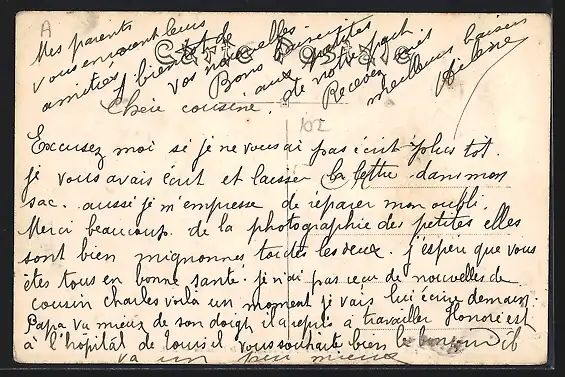 A
Carte Postale
Mes parents
vous envoient leurs
amitiés
A bientôt de
vos nouvelles
Bons souvenirs
aux petites
de notre part
Recevez mes
meilleurs baisers
Hélène
Chère cousine,
10E
Excusez moi si je ne vous ai pas écrit plus tot.
je vous avais écrit et laisser la lettre dans mon
sac. aussi je m'empresse de réparer mon oubli.
Merci beaucoup de la photographie des petites elles
sont bien mignonnes toutes les deux. j'espère que vous
êtes tous en bonne santé. je n'ai pas reçu de nouvelles de
cousin Charles voilà un moment je vais lui écrire demain.
Papa va mieux de son doigt il a repris à travailler Honoré est
à l'hôpital de vous souhaite bien le bonjour il
va un peu mieux